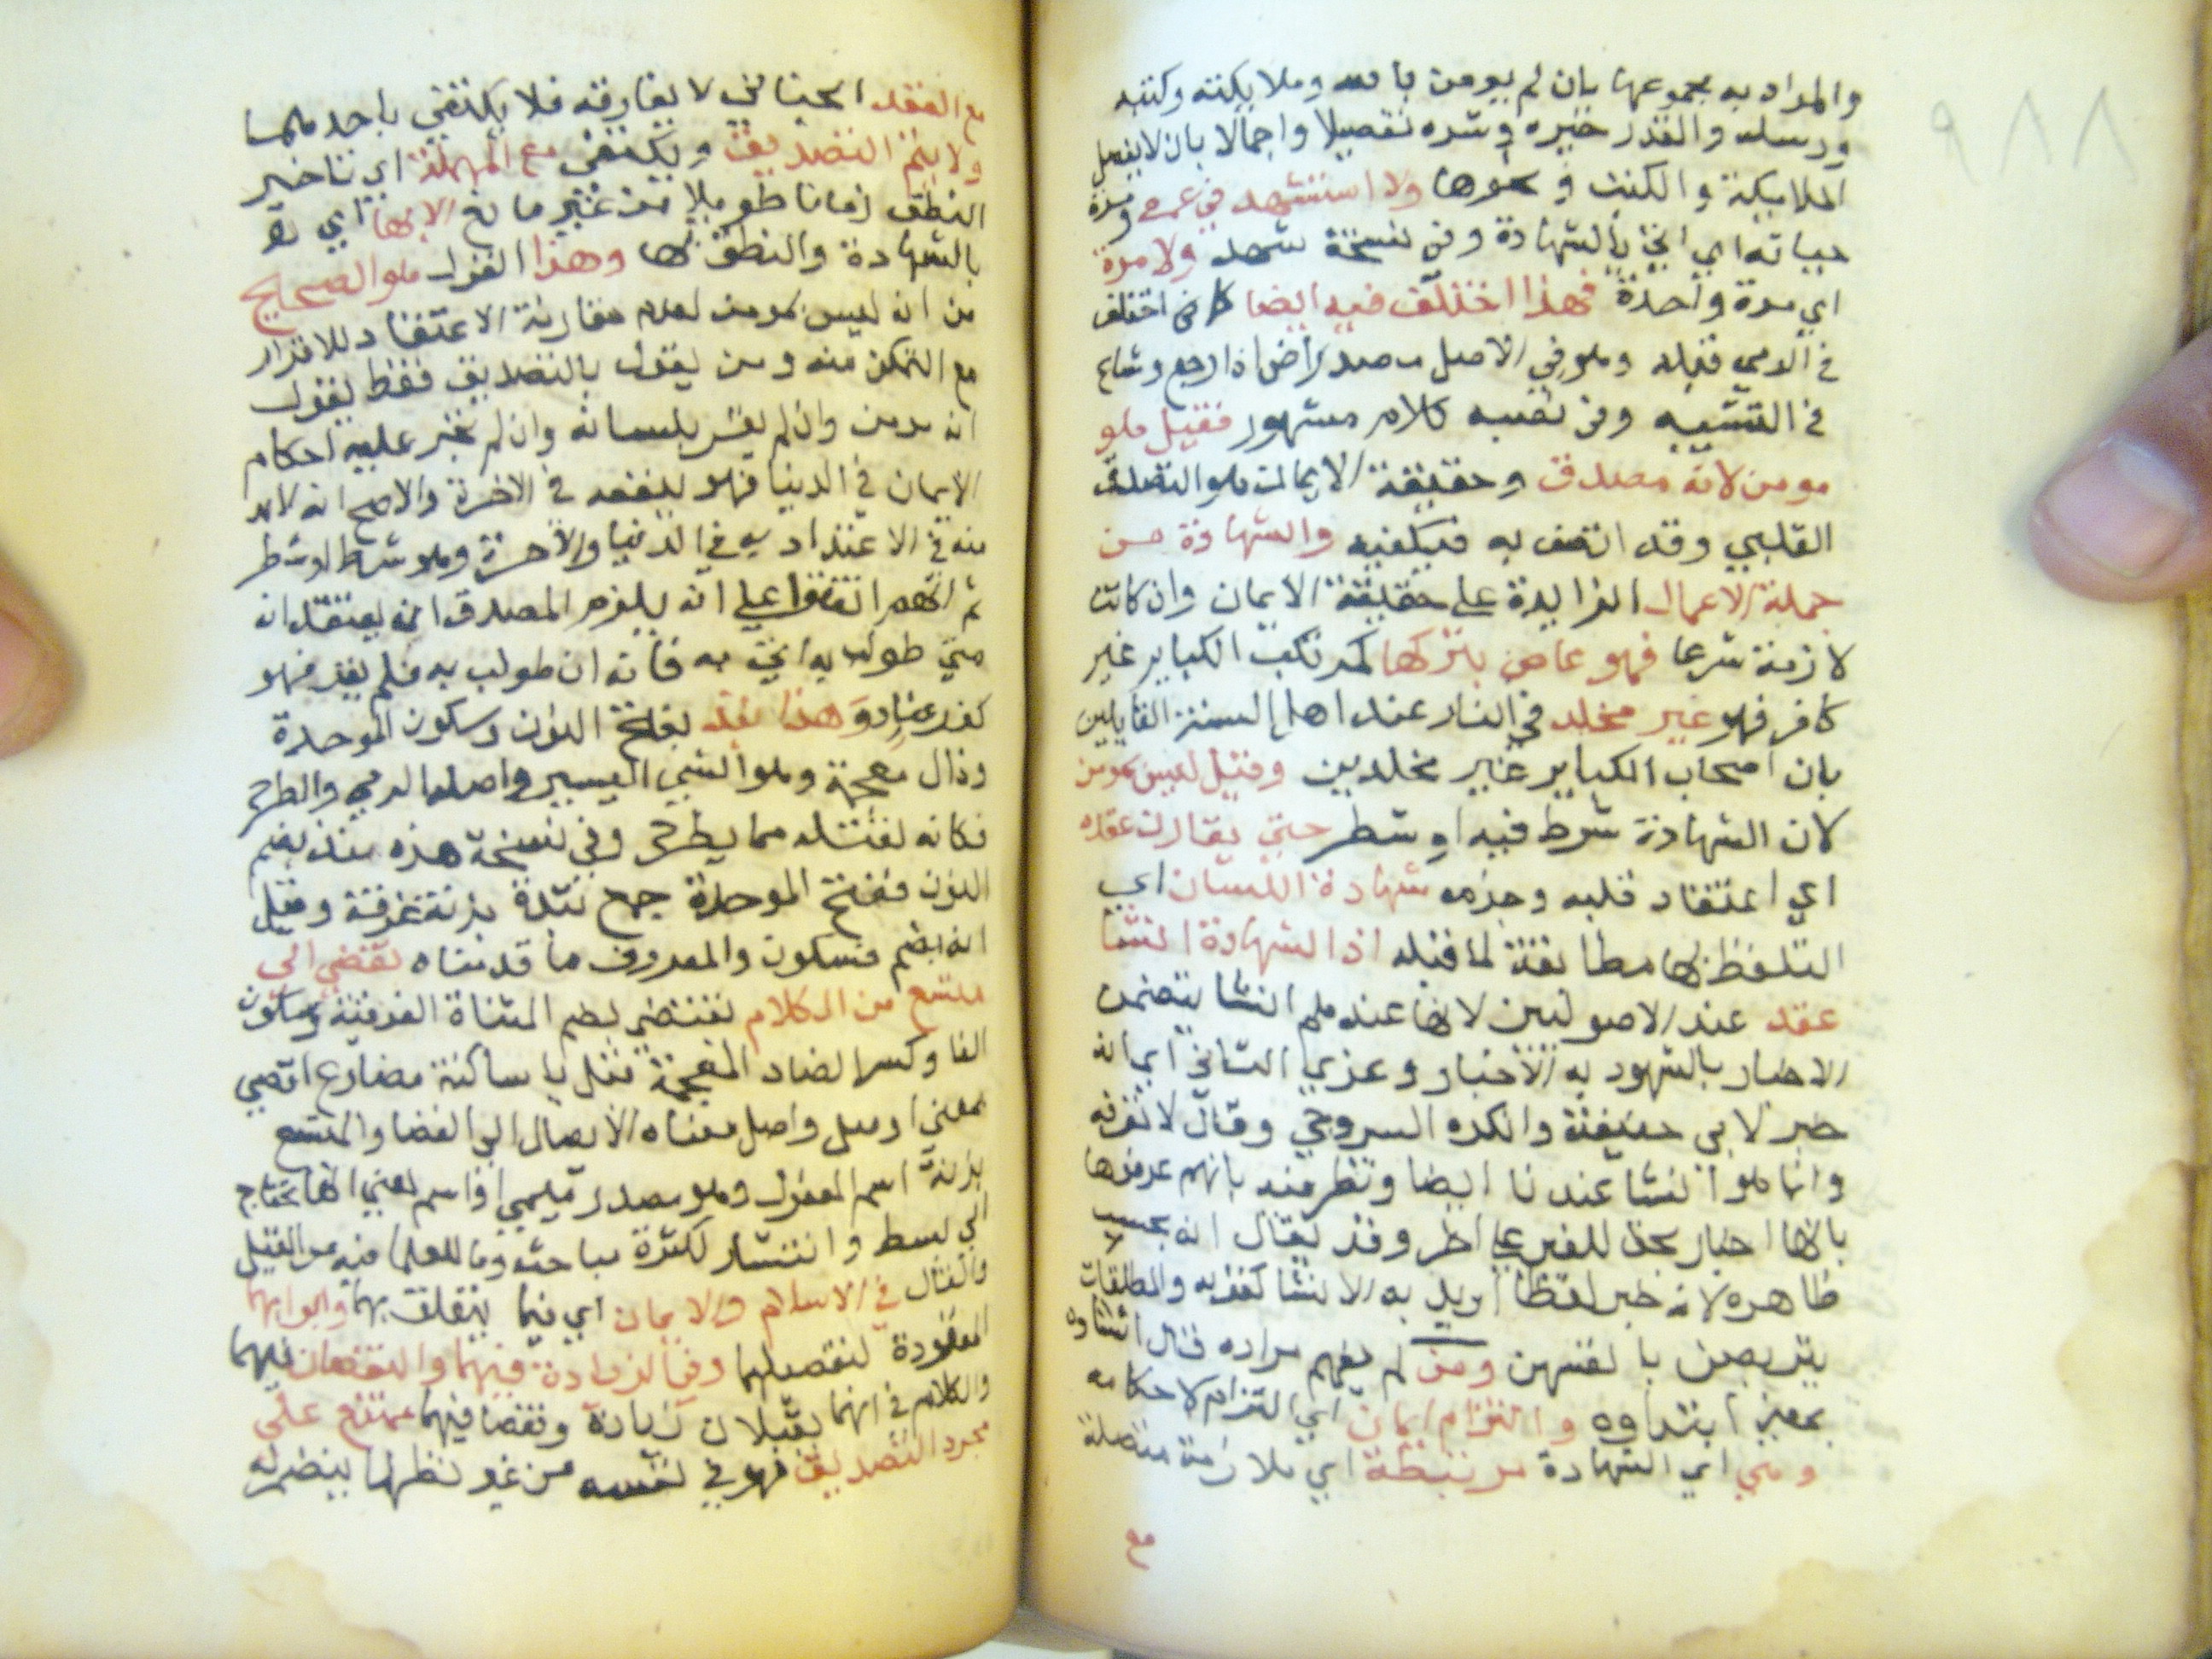 ٩٨٨
والمراد به مجموعها بان لم يومن بالله وملايكته وكتبه
ورسله والقدر خيره وشره تفصيلا واجمالا بان لا يفصل
الملايكة والكتب ونحوها ولا استشهد في عمره ومدة
حياته اي اتي بالشهادة وفي نسخة تشهد ولا مرة
اي مرة واحدة فهذا اختلف فيه ايضا كما اختلف
في الذي قبله وهو في الاصل مصدر آض اذا رجع وشاع
في التشبيه وفي نصبه كلام مشهور فقيل هو
مومن لانه مصدق وحقيقة الايمان هو التصديق
القلبي وقد اتصف به فيكفيه والشهادة من
جملة الاعمال الزايدة على حقيقة الايمان وان كانت
لازمة شرعا فهو عاص بتركها كمرتكب الكباير غير
كافر فهو غير مخلد في النار عند اهل السنة القايلين
بان اصحاب الكباير غير مخلدين وقيل ليس بمومن
لان الشهادة شرط فيه او شطر حتي يقارن عقده
اي اعتقاد قلبه وجزمه شهادة اللسان اي
التلفظ بها مطابقة لما قبله اذا الشهادة انشا
عقد عند الاصوليين لانها عندهم انشا يتضمن
الاخبار بالشهود به الاخبار وعزي الثاني اي انه
خبر لابي حنيفة وانكره السروجي وقال لا نعرفه
وانما هو انشا عندنا ايضا ونظر فيه بانهم عرفوها
بانها اخبار بحق للغير على اخر وقد يقال انه بحسب
ظاهره لانه خبر لفظا اريد به الانشا كقوله والمطلقات
يتربصن بانفسهن ومن لم يفهم مراده قال انشاوه
بمعني ابتداوه والتزام ايمان اي التزام لاحكامه
وهي اي الشهادة مرتبطة اي ملازمة متصلة
مع
مع العقد الجناني لا يفارقه فلا يكتفي باحدهما
ولا يتم التصديق ويكتفي مع المهلة اي تاخير
النطق زمانا طويلا من غير مانع الا بها اي
بالشهادة والنطق بها وهذا القول هو الصحيح
من انه ليس بمومن لعدم مقارنة الاعتقاد للاقرار
مع التمكن منه ومن يقول بالتصديق فقط يقول
انه مومن وان لم يقر بلسانه وان لم تجر عليه احكام
الايمان في الدنيا فهو ينفعه في الاخرة والاصح انه لا بد
منه في الاعتداد به في الدنيا والاخرة وهو شرط او شطر
ثم انهم اتفقوا علي انه يلزم المصدق ان يعتقد انه
متي طولب به اتي به فانه ان طولب به فلم يقر فهو
كفر عناد وهذا نبذ بفتح النون وسكون الموحدة
وذال معجمة وهو الشي اليسير واصله الرمي والطرح
فكانه لقلته مما يطرح وفي نسخة هذه نبذ بضم
النون ففتح الموحدة جمع نبذة بزنة غرفة وقيل
انه بضم فسكون والمعروف ما قدمناه تفضي الي
متسع من الكلام تفضي بضم المثناة الفوقية وسكون
الفا وكسر الضاد المعجمة قبل يا ساكنة مضارع افضي
بمعني اوصل واصل معناه الايصال الي الفضا والمتسع
بزنة اسم المفعول وهو مصدر ميمي او اسم يعني انها تحتاج
الي بسط وانتشار لكثرة مباحثه وما للعلما فيه من القيل
والقال في الاسلام والايمان اي فيما يتعلق بهما وابوابهما
المعقودة لتفصيلهما وفي الزيادة فيهما والنقصان فيهما
والكلام في انهما يقبلان زيادة ونقصا فيهما ممتنع علي
مجرد التصديق فهو في نفسه من غير نظر لما ينضم له